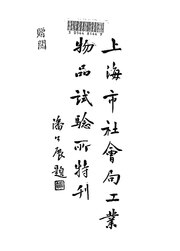 上海市社會局工業
物品試驗所特刊
潘公展題